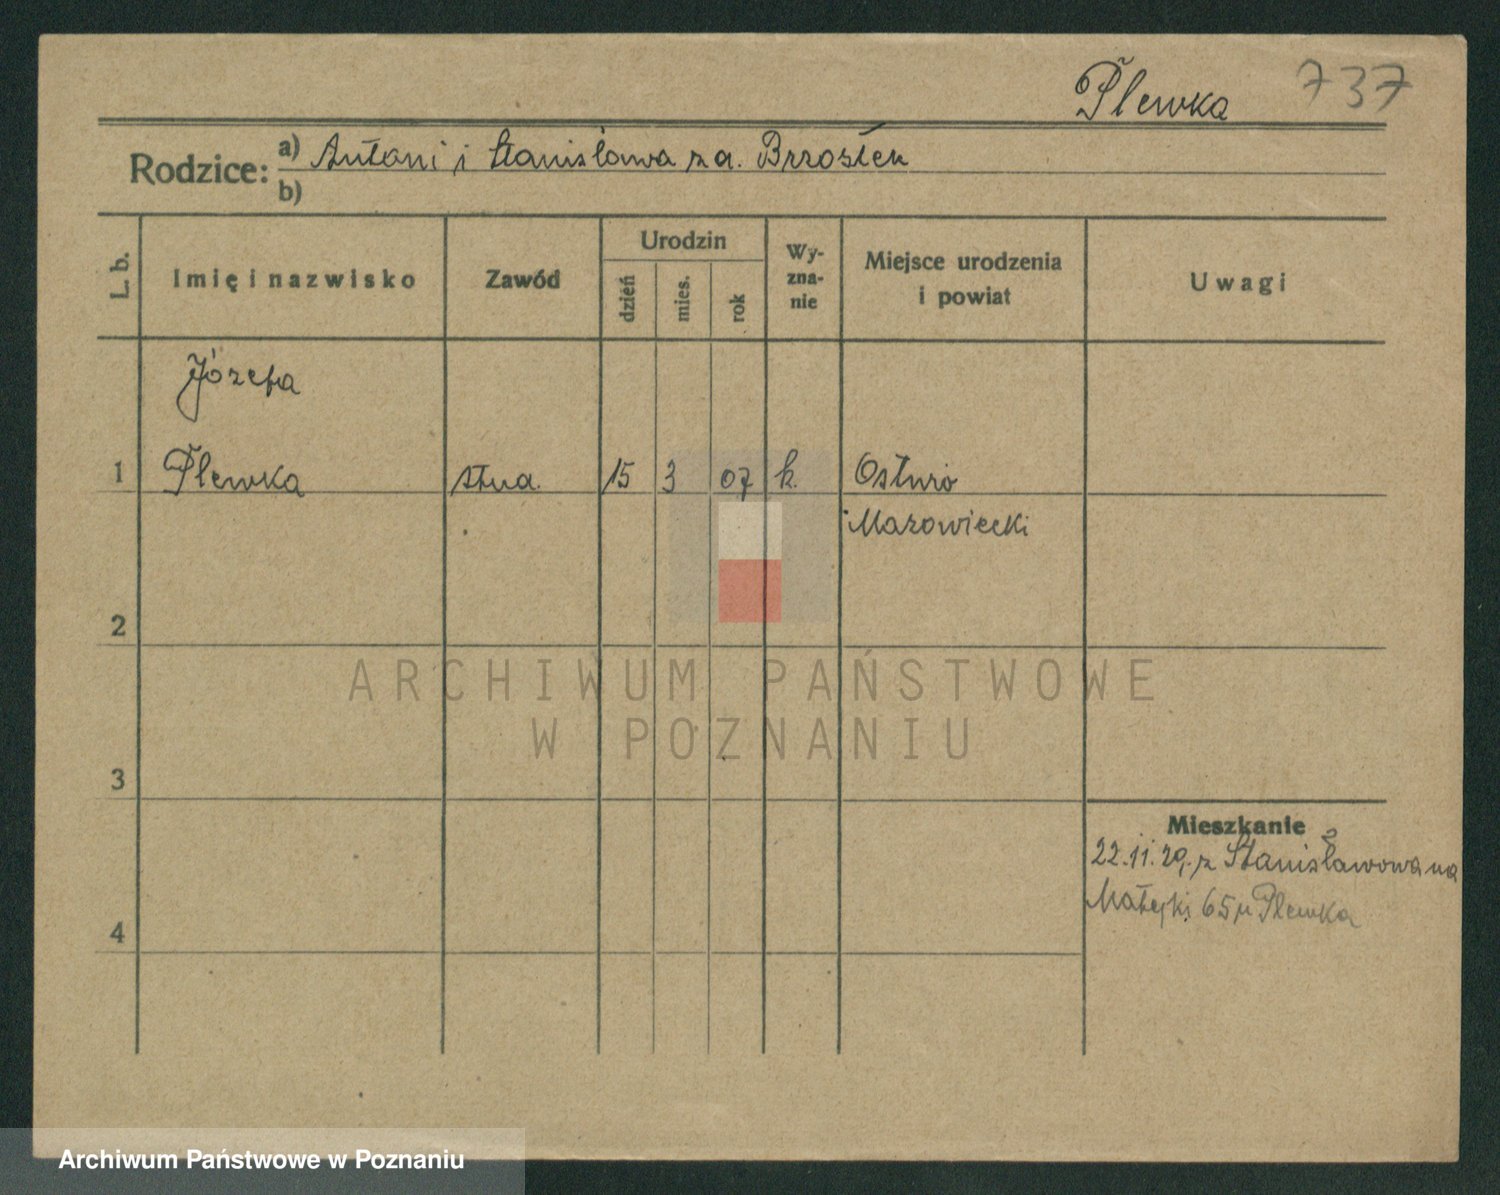 Plewka 737
Rodzice: a) Antoni i Stanisława z d. Brzostek
b)
L. b. Imię i nazwisko Zawód Urodzin dzień mies. rok Wy-zna-nie Miejsce urodzenia i powiat Uwagi
Józefa
1 Plewka 15 3 07 k.
Mazowiecki
2
3
Mieszkanie
22.11.29. z Stanisławowa na
Matejki 65 u Plewka
4
ARCHIWUM PAŃSTWOWE
W POZNANIU
Archiwum Państwowe w Poznaniu